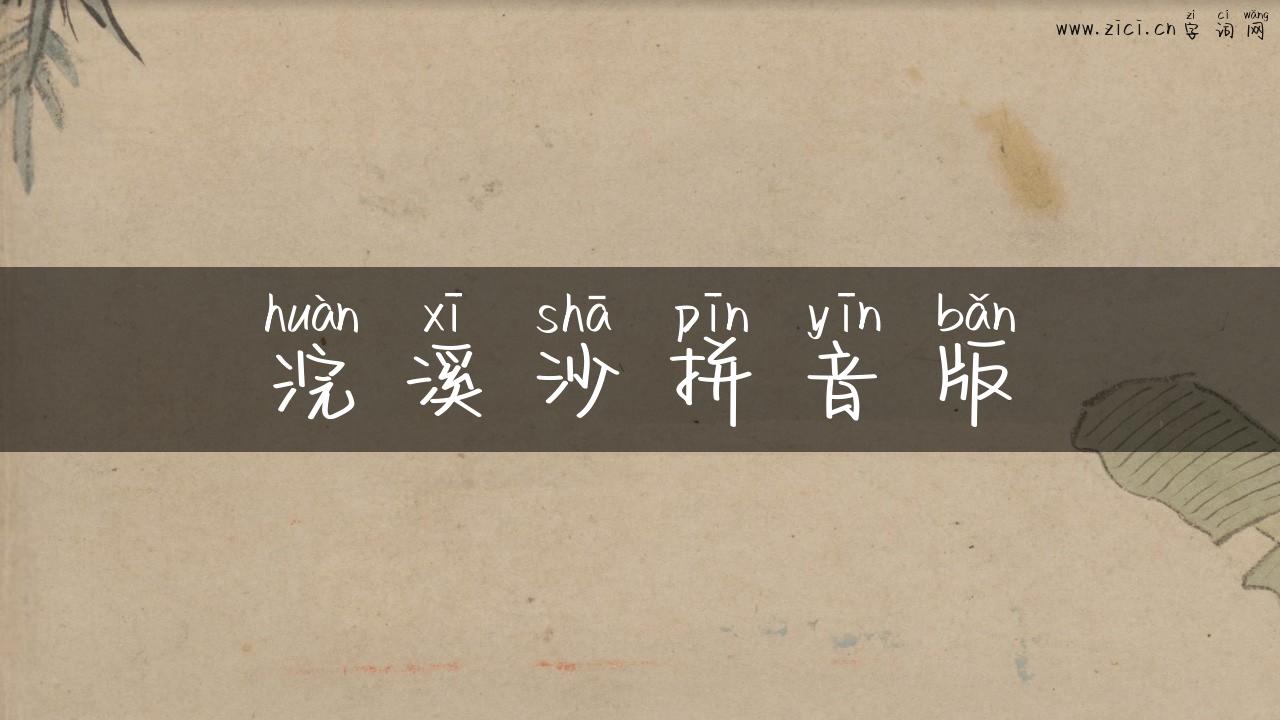 zì cí wǎng
www.zici.cn 字 词 网
huàn xī shā pīn yīn bǎn
浣 溪 沙 拼 音 版